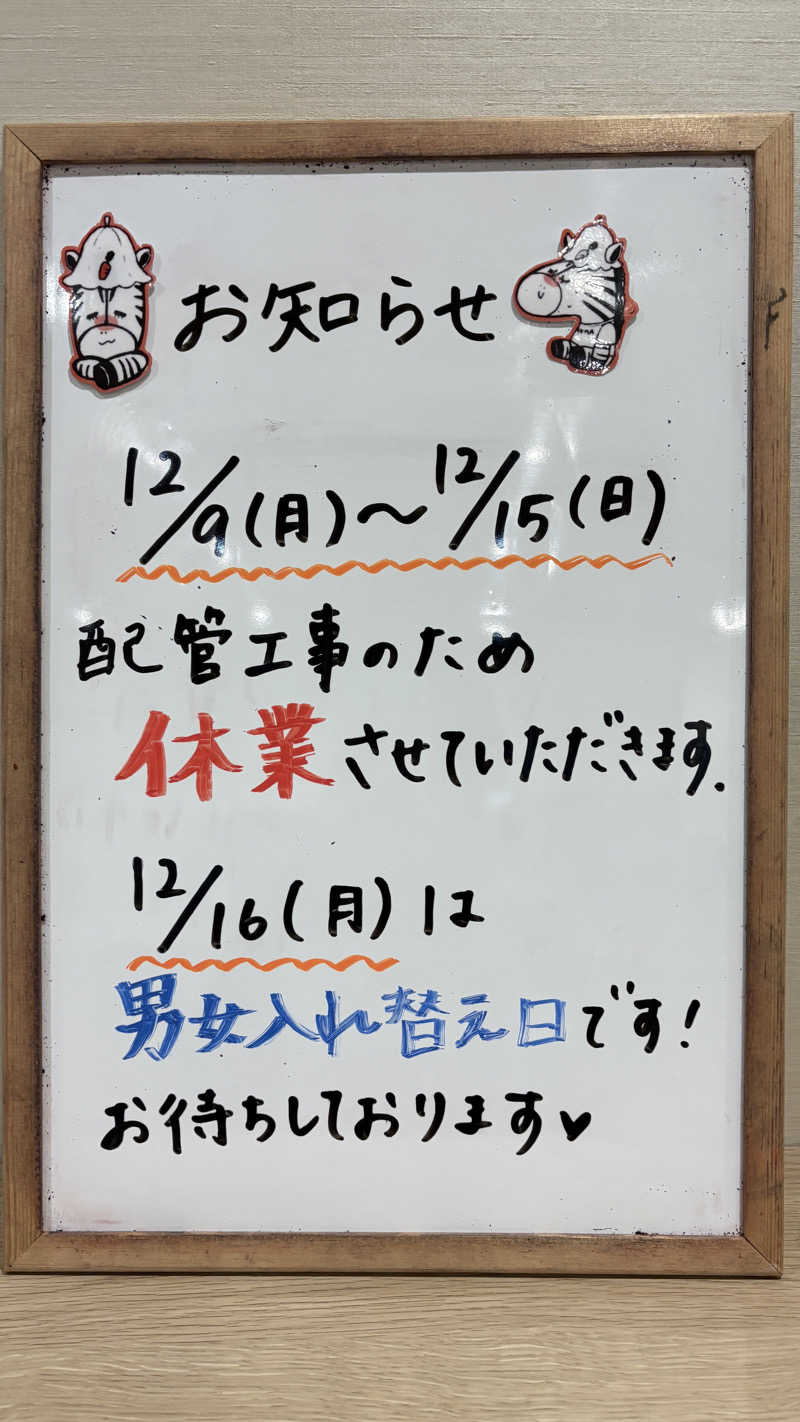 お知らせ
12/9(月)～12/15(日)
配管工事のため
休業させていただきます.
12/16(月)は
男女入れ替え日です!
お待ちしております♥